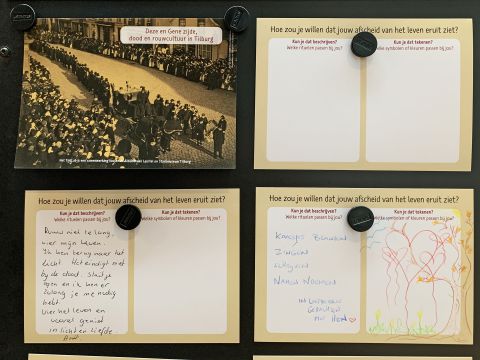 Deze en Gene zijde,
dood en rouwcultuur in Tilburg
Hoe zou je willen dat jouw afscheid van het leven eruit ziet?
Kun je dat beschrijven?
Welke rituelen passen bij jou?
Kun je dat tekenen?
Welke symbolen of kleuren passen bij jou?
Hoe zou je willen dat jouw afscheid van het leven eruit ziet?
Kun je dat beschrijven?
Welke rituelen passen bij jou?
Kun je dat tekenen?
Welke symbolen of kleuren passen bij jou?
Rouw niet te lang,
vier mijn leven.
Ik ben terug naar het
licht. Het eindigt niet
bij de dood.
open en ik ben er
zolang je me nodig
hebt.
Vier het leven en
vooral geniet
in licht en liefde.
Hoe zou je willen dat jouw afscheid van het leven eruit ziet?
Kun je dat beschrijven?
Welke rituelen passen bij jou?
Kun je dat tekenen?
Welke symbolen of kleuren passen bij jou?
Kaarsjes Branden
Zingen
Namen Noemen